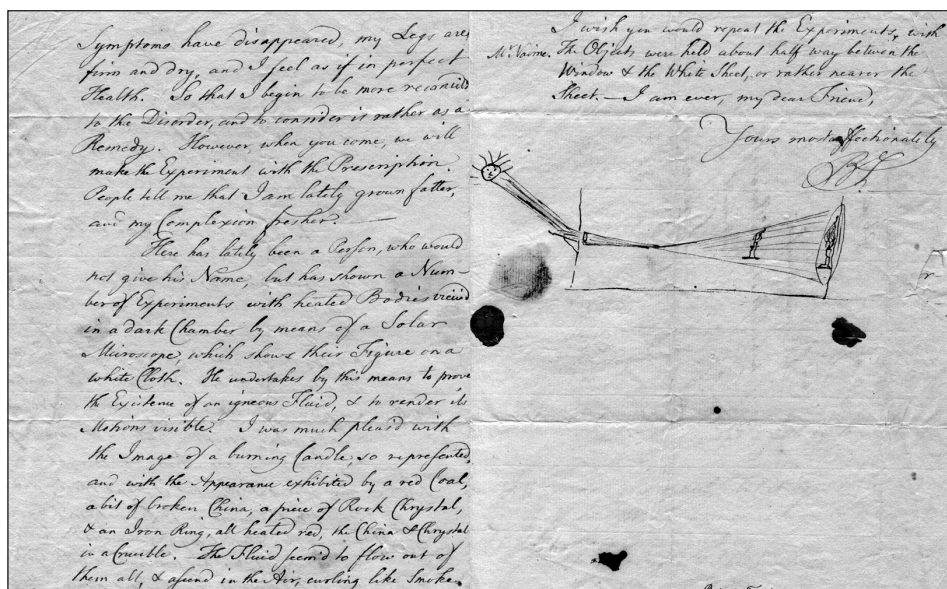 Symptoms have disappeared, my Legs are
firm and dry, and I feel as if in perfect
Health. So that I begin to be more reconcil'd
to the Disorder, and to consider it rather as a
Remedy. However, when you come, we will
make the Experiment with the Prescription.
People tell me that I am lately grown fatter,
and my Complexion fresher. —
Here has lately been a Person, who would
not give his Name, but has shown a Num-
ber of Experiments with heated Bodies view'd
in a dark Chamber by means of a Solar
Microscope, which shows their Figure on a
white Cloth. He undertakes by this means to prove
the Existence of an igneous Fluid, & to render its
Motions visible. I was much pleas'd with
the Image of a burning Candle, so represented,
and with the Appearance exhibited by a red Coal,
a bit of broken China, a piece of Rock Chrystal,
& an Iron Ring, all heated red, the China & Chrystal
in a Crucible. The Fluid seem'd to flow out of
them all, & ascend in the Air, curling like Smoke.
I wish you would repeat the Experiments, with
Mr Nairne. The Objects were held about half way between the
Window & the White Sheet, or rather nearer the
Sheet. — I am ever, my dear Friend,
Yours most affectionately
BF